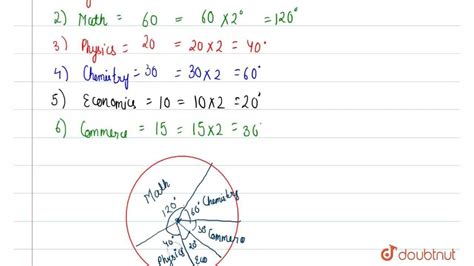 2) Math = 60 = 60 x 2° = 120°
3) Physics = 20 = 20 x 2 = 40°
4) Chemistry = 30 = 30 x 2 = 60°
5) Economics = 10 = 10 x 2 = 20°
6) Commerce = 15 = 15 x 2 = 30°
Math
120°
60° Chemistry
30° Commerce
40° 20°
Physics
Eco
doubtnut